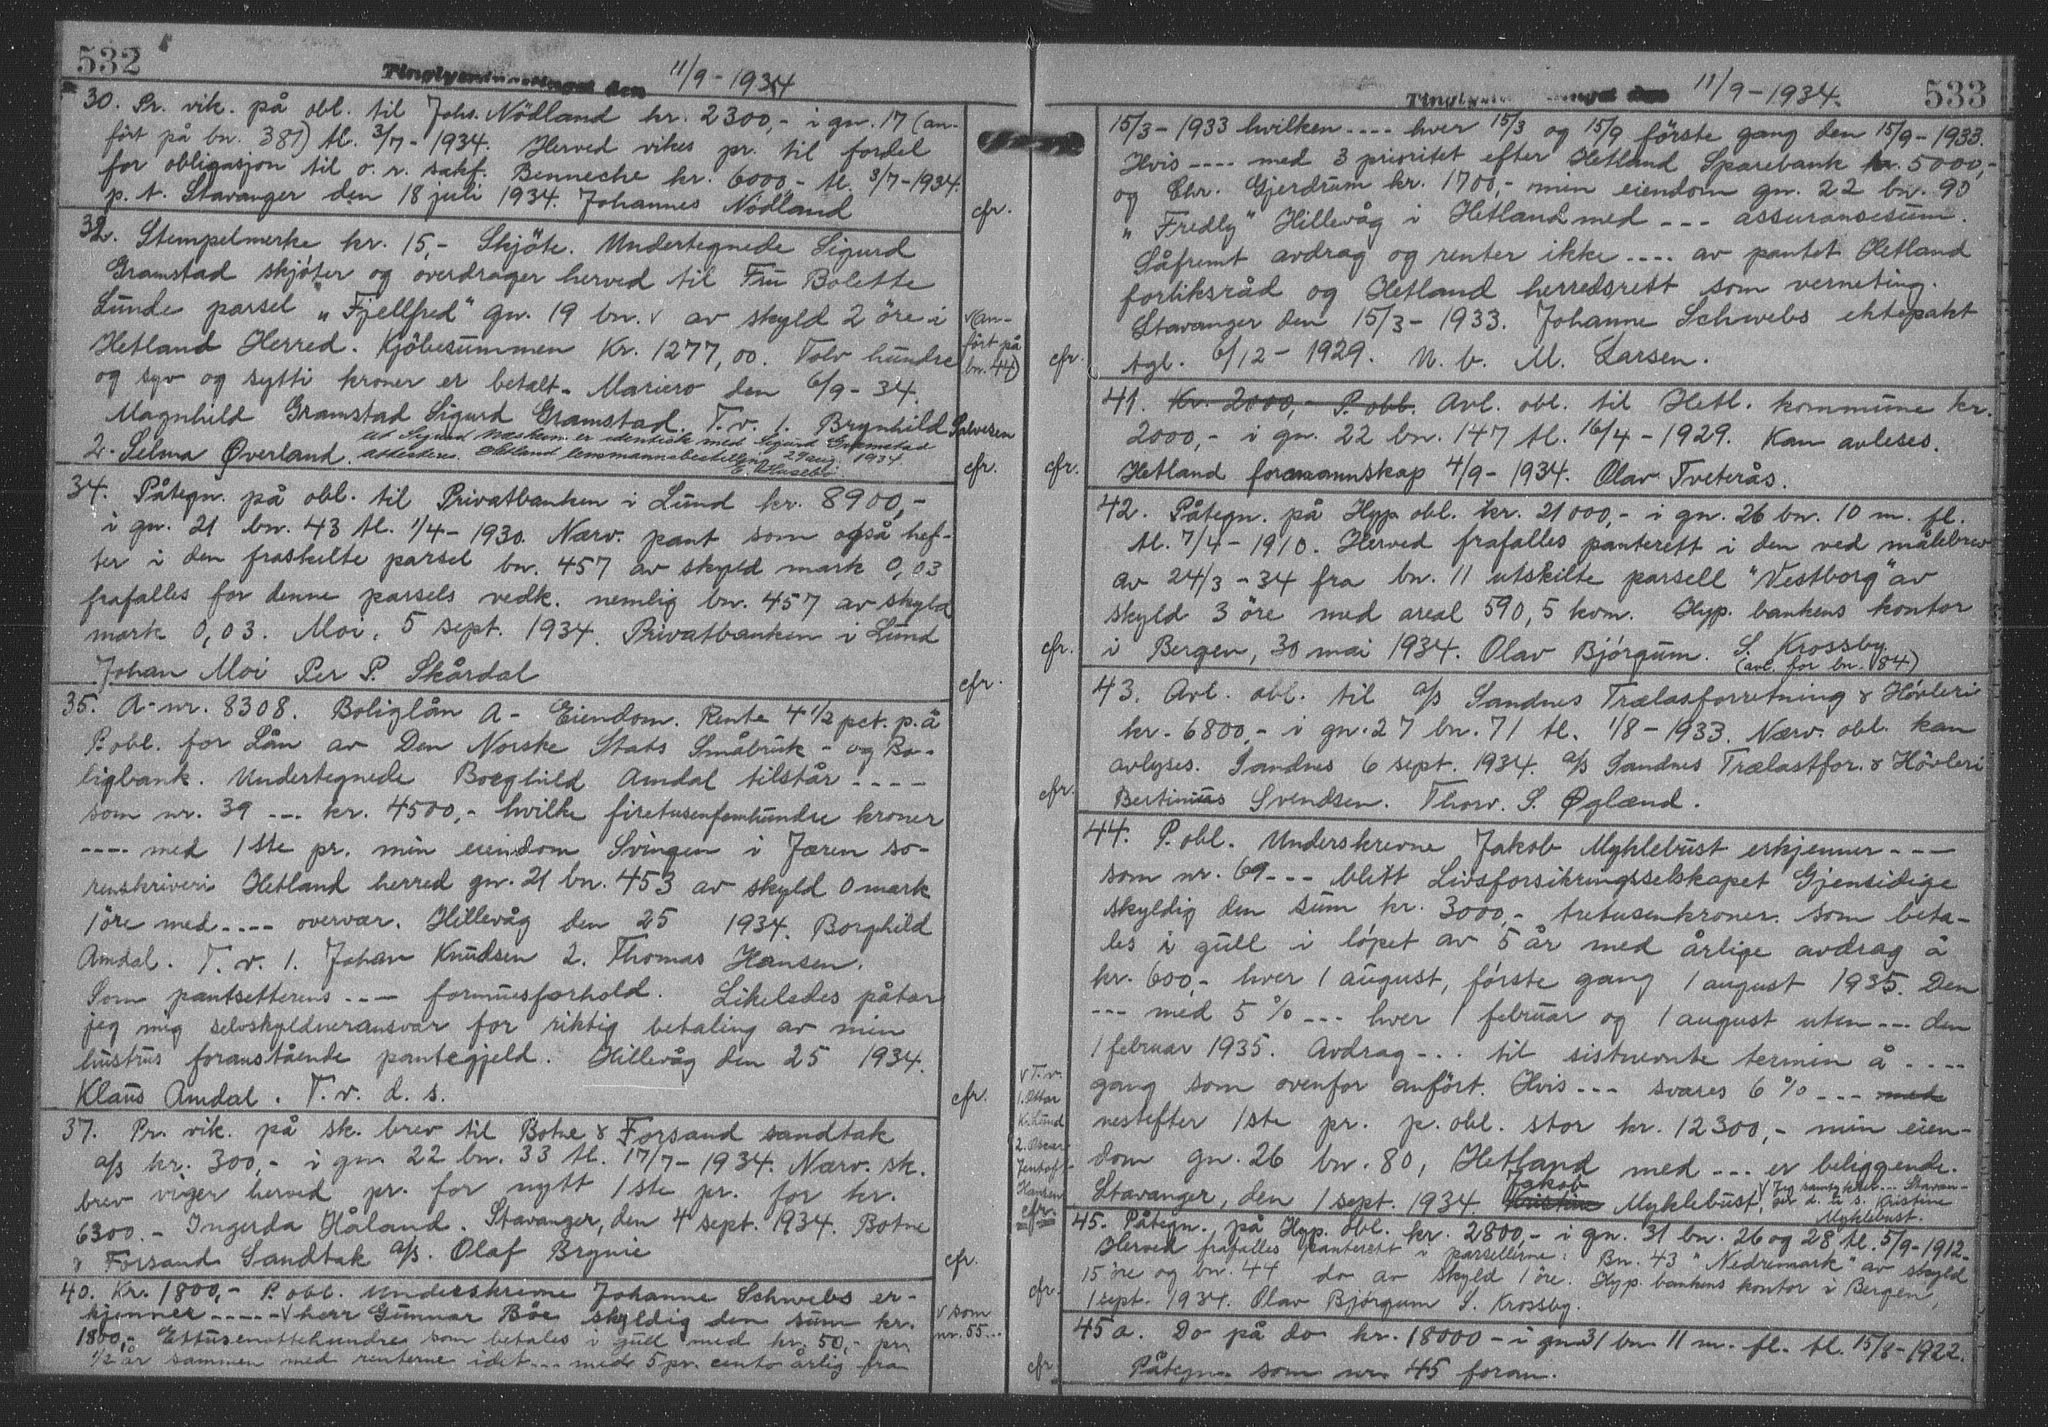 532
11/9-1934
30. Pr. vik. på obl. til Johs. Nödland kr. 2300,- i gn. 17 (an-
ført på bn. 387) tl. 3/7-1934. Herved vikes pr. til fordel
for obligasjon til o. r. sakf. Benneche kr. 6000,- tl. 3/7-1934.
p. t. Stavanger den 18 juli 1934. Johannes Nödland
cfr.
32. Stempelmerke kr. 15,- Skjöte. Undertegnede Sigurd
Gramstad skjöter og overdrager herved til Fru Bolette
Lunde parsel "Fjellfred" gn. 19 bn. v av skyld 2 öre i
Hetland Herred. Kjöbesummen Kr. 1277,00. Tolv hundre
og syv og sytti kroner er betalt. Mariero den 6/9-34.
Magnhild Gramstad Sigurd Gramstad. T. v. 1. Brynhild Salvesen
2. Selma Øverland.
at Sigurd er identisk med Sigurd Gramstad
attesteres. Hetland lensmannsbestilling 29 aug. 1934.
v (An-
fört på
bn. 44)
cfr.
34. Påtegn. på obl. til Privatbanken i Lund kr. 8900,-
i gn. 21 bn. 43 tl. 1/4-1930. Nærv. pant som også hef-
ter i den fraskilte parsel bn. 457 av skyld mark 0,03
frafalles for denne parsels vedk. nemlig bn. 457 av skyld
mark 0,03. Moi, 5 sept. 1934. Privatbanken i Lund
Johan Moi Per P. Skårdal
cfr.
35. A-nr. 8308. Boliglån A- Eiendom. Rente 4 1/2 pct. p. å
P. obl. for Lån av Den Norske Stats Småbruk- og Bo-
ligbank. Undertegnede Borghild Amdal tilstår ----
som nr. 39 --- kr. 4500,- hvilke firetusenfemhundre kroner
---- med 1ste pr. min eiendom Svingen i Jæren so-
renskriveri Hetland herred gn. 21 bn. 453 av skyld 0 mark
1 öre med ---- overvær. Hillevåg den 25 1934. Borghild
Amdal. T. v. 1. Johan Knudsen 2. Thomas Hansen.
Som pantsetterens --- formuesforhold. Likeledes påtar
jeg mig selvskyldneransvar for riktig betaling av min
hustrus foranstående pantegjeld. Hillevåg den 25 1934.
Klaus Amdal. T. v. d. s.
cfr.
37. Pr. vik. på sk. brev til Botne & Forsand sandtak
a/s kr. 300,- i gn. 22 bn. 33 tl. 17/7-1934. Nærv. sk.
brev viger herved pr. for nytt 1ste pr. for kr.
6300.- Ingerda Håland. Stavanger, den 4 sept. 1934. Botne
& Forsand Sandtak a/s. Olaf Brynie
cfr.
40. Kr. 1800,- P. obl. Underskrevne Johanne Schwebs er-
kjenner ----- v herr Gunnar Böe skyldig den sum kr.
1800,- Ettusenottehundre som betales i gull med kr. 50,- pr.
1/2 år sammen med renterne idet --- med 5 pr. cento årlig fra
v som
nr. 55...
11/9-1934.
533
15/3-1933 hvilken ---- hver 15/3 og 15/9 förste gang den 15/9-1933.
Hvis ---- med 3 prioritet efter Hetland Sparebank kr. 5000,-
og Chr. Gjerdrum kr. 1700,- min eiendom gn. 22 bn. 90
"Fredly" Hillevåg i Hetland med --- assuransesum.
Såfremt avdrag og renter ikke ---- av pantet Hetland
forliksråd og Hetland herredsrett som verneting.
Stavanger den 15/3-1933. Johanne Schwebs ektepakt
tgl. 6/12-1929. N. b. M. Larsen.
cfr.
41. Kr. 2000,- P. obl. Avl. obl. til Hetl. kommune kr.
2000,- i gn. 22 bn. 147 tl. 16/4-1929. Kan avleses.
Hetland formannskap 4/9-1934. Olav Tveterås.
cfr.
42. Påtegn. på Hyp. obl. kr. 21000,- i gn. 26 bn. 10 m. fl.
tl. 7/4-1910. Herved frafalles panterett i den ved målebrev
av 24/3-34 fra bn. 11 utskilte parsell "Vestborg" av
skyld 3 öre med areal 590,5 kvm. Hyp. bankens kontor
i Bergen, 30 mai 1934. Olav Björgum. S. Krossby.
(avl. for bn. 184)
cfr.
43. Avl. obl. til a/s Sandnes Trælasforretning & Hövleri
kr. 6800,- i gn. 27 bn. 71 tl. 1/8-1933. Nærv. obl. kan
avlyses. Sandnes 6 sept. 1934. a/s Sandnes Trælastfor. & Hövleri
Bertinius Svendsen. Thorv. S. Øglænd.
cfr.
44. P. obl. Underskrevne Jakob Myklebust erkjenner ---
som nr. 69 --- blitt Livsforsikringsselskapet Gjensidige
skyldig den sum kr. 3000,- tretusenkroner som beta-
les i gull i löpet av 5 år med årlige avdrag å
kr. 600,- hver 1 august, förste gang 1 august 1935. Den
--- med 5 % --- hver 1 februar og 1 august uten --- den
1 februar 1935. Avdrag --- til sistnevnte termin å ----
gang som ovenfor anfört. Hvis --- svares 6 % --- med
nestefter 1ste pr. p. obl. stor kr. 12300,- min eien-
dom gn. 26 bn. 80, Hetland med --- er beliggende.
Stavanger, den 1 sept. 1934. Kristine Jakob Myklebust, v Jeg samtykker --- Stavan-
ger d. u. s. Kristine
Myklebust.
v T. v.
1. Ottar
K. Lund
2. Oscar
Jentoft
Hansen
cfr.
45. Påtegn. på Hyp. obl. kr. 2800,- i gn. 31 bn. 26 og 28 tl. 5/9-1912.
Herved frafalles panterett i parsellerne: Bn. 43 "Nedremark" av skyld
15 öre og bn. 44 do av skyld 1 öre. Hyp. bankens kontor i Bergen,
1 sept. 1934. Olav Björgum S. Krossby.
cfr.
45 a. Do på do kr. 18000,- i gn 31 bn 11 m. fl. tl. 15/8-1922.
Påtegn. som nr. 45 foran.
cfr